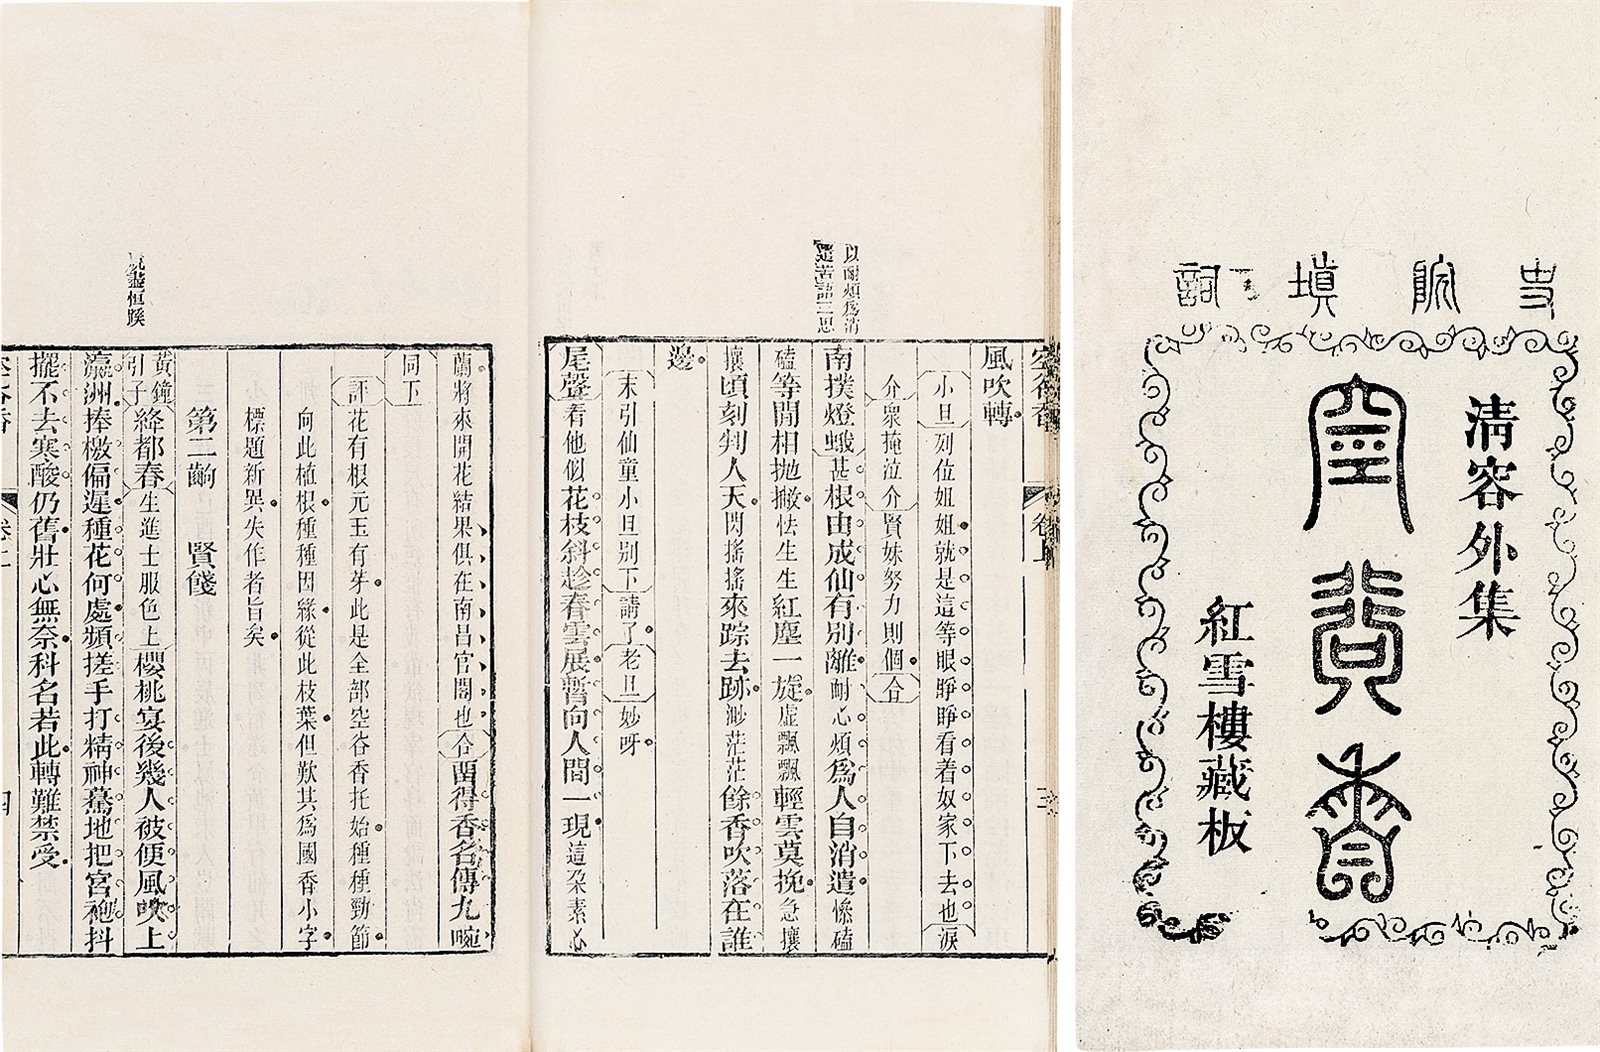 史院填詞
清容外集
空谷香
紅雪樓藏板
空谷香
卷上
三
風吹轉
小旦列位姐姐就是這等眼睜睜看着奴家下去也淚
介衆掩泣介賢妹努力則個合
南撲燈蛾甚根由成仙有別離耐心煩爲人自消遣慘磕
磕等閒相拋撇怯生生紅塵一旋虛飄飄輕雲莫挽急攘
攘頃刻判人天閃搖搖來踪去跡渺茫茫餘香吹落在誰
邊
末引仙童小旦別下請了老旦妙呀
尾聲看他似花枝斜趁春雲展暫向人間一現這朶素心
以耐煩爲消
遣苦語三思
蘭將來開花結果俱在南昌官閣也合留得香名傳九畹
同下
評花有根元玉有芽此是全部空谷香托始種種勁節
向此植根種種因緣從此枝葉但歎其爲國香小字
標題新異失作者旨矣
第二齣　賢餞
黃鐘引子絳都春生進士服色上櫻桃宴後幾人被便風吹上
瀛洲捧檄偏遲種花何處頻搓手打精神驀地把宮袍抖
擺不去寒酸仍舊壯心無奈科名若此轉難禁受
空谷香
卷上
四